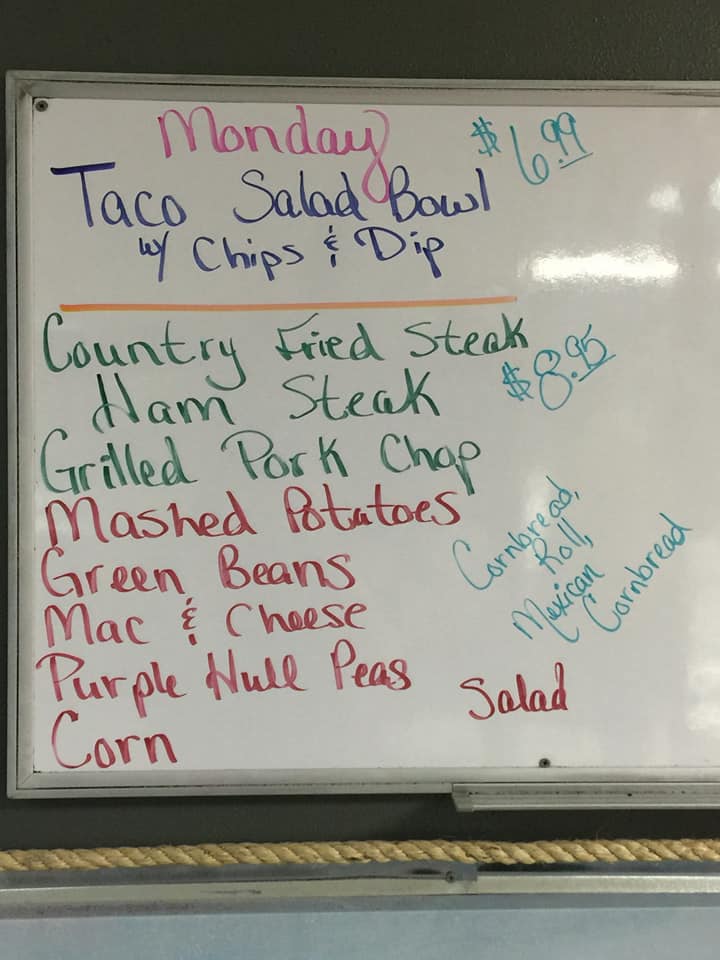 Monday
$6.99
Taco Salad Bowl
w/ Chips & Dip
Country Fried Steak
$8.95
Ham Steak
Grilled Pork Chop
Mashed Potatoes
Green Beans
Mac & Cheese
Purple Hull Peas
Corn
Cornbread,
Roll,
Mexican
Cornbread
Salad